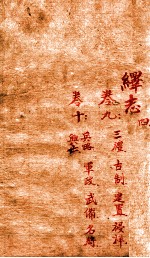 繹志 四
卷九：三禮 古制 建置 祲祥
卷十：兵略 軍政 武備 名臣